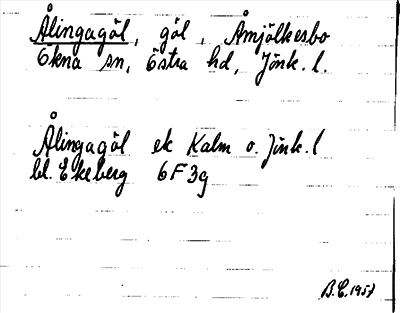 Ålingagöl, göl, Åmjölkesbo
Ökna sn, Östra hd, Jönk. l.
Ålingagöl ek Kalm o. Jönk. l
bl. Ekeberg 6F3g
B.E. 1957